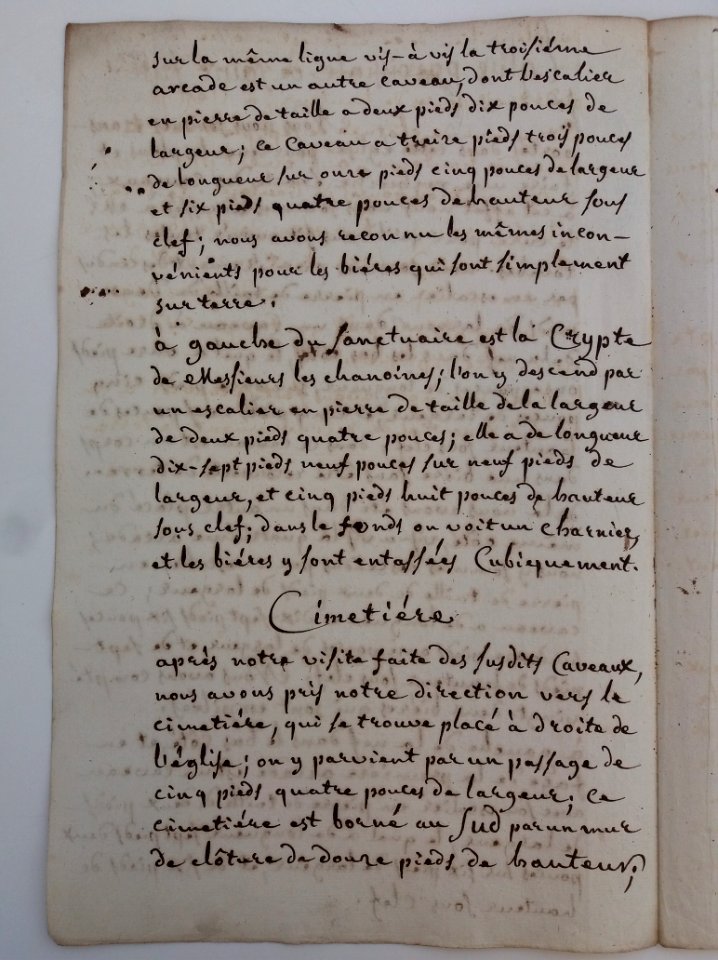 sur la même ligne vis-à vis la troisiéme
arcade est un autre caveau, dont l'escalier
en pierre de taille a deux pieds dix pouces de
largeur; ce caveau a treize pieds trois pouces
de longueur sur onze pieds cinq pouces de largeur
et six pieds quatre pouces de hauteur sous
clef; nous avons reconnu les mêmes incon-
vénients pour les biéres qui sont simplement
sur terre.
à gauche du sanctuaire est la Crypte
de Messieurs les chanoines; l'on y descend par
un escalier en pierre de taille de la largeur
de deux pieds quatre pouces; elle a de longueur
dix-sept pieds neuf pouces sur neuf pieds de
largeur, et cinq pieds huit pouces de hauteur
sous clef; dans le fonds on voit un charnier,
et les biéres y sont entassées Cubiquement.
Cimetiére
après notre visite faite des susdits Caveaux,
nous avons pris notre direction vers le
cimetiére, qui se trouve placé à droite de
l'église; on y parvient par un passage de
cinq pieds quatre pouces de largeur; ce
cimetiére est borné au sud par un mur
de clôture de douze pieds de hauteur;